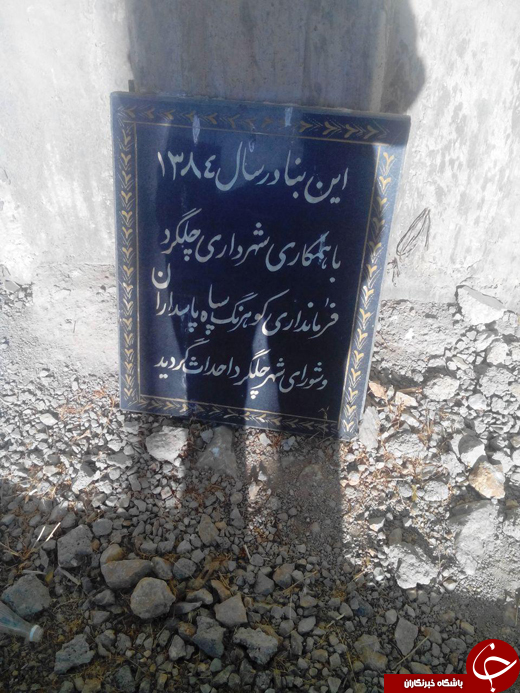 این بنا در سال ۱۳۸۴
با همکاری شهرداری چلگرد
فرمانداری کوهرنگ سپاه پاسداران
و شورای شهر چلگرد احداث گردید
باشگاه خبرنگاران